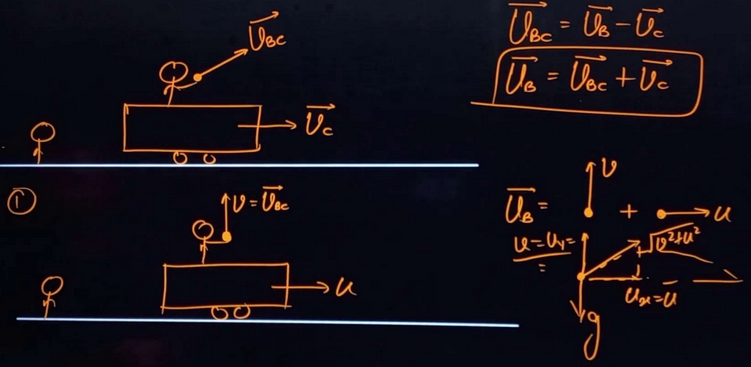 U⃗_BC
U⃗_BC = U⃗_B - U⃗_C
U⃗_B = U⃗_BC + U⃗_C
U⃗_C
①
v = U⃗_BC
u
U⃗_B =
v
+
u
√v²+u²
u_x = u
g